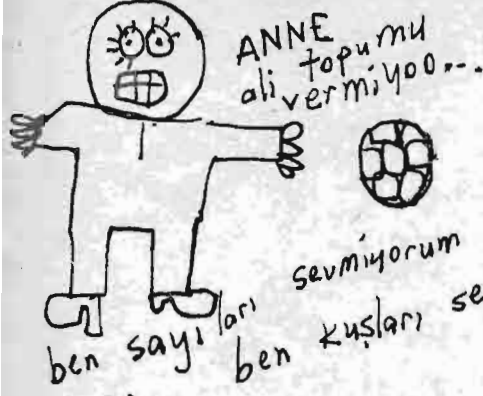 ANNE
topumu
ali vermiyoo...
ben sayıları sevmiyorum
ben kuşları se